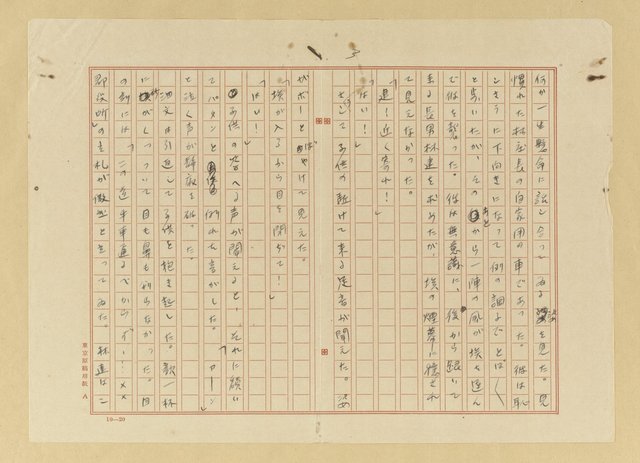 何か一生懸命に話し合ってゐるのを見た。見
慣れた林庄長の自家用の車であった。彼は恥
しさうに下向きになって例の調子でとぼ〱
と歩いたが、そのあとから一陣の風が埃を運ん
で彼を襲った。彼は無意識に、後から蹤いて
来る長男林連を求めたが、埃の煙幕に隠され
て見えなかった。
「連！近く寄れ！」
「はい！」
さういって子供の駈けて来る足音が聞えた。姿
がボーとぼやけて見えた。
「埃が入るから目を閉ぢて！」
「はい！」
子供の答へる声が聞えると、それに続い
てバタンと倒れる音がした。「ワーン」
と泣く声が静寂を破った。
酒文は引返して子供を抱き起した。歎一杯
に埃がくっついて目も鼻も判らなかった。目
の前には「この近車乗通るべからず！……××
郡役所」の立札が傲然と立ってゐた。林連は二
東京原稿用紙 A
10—20